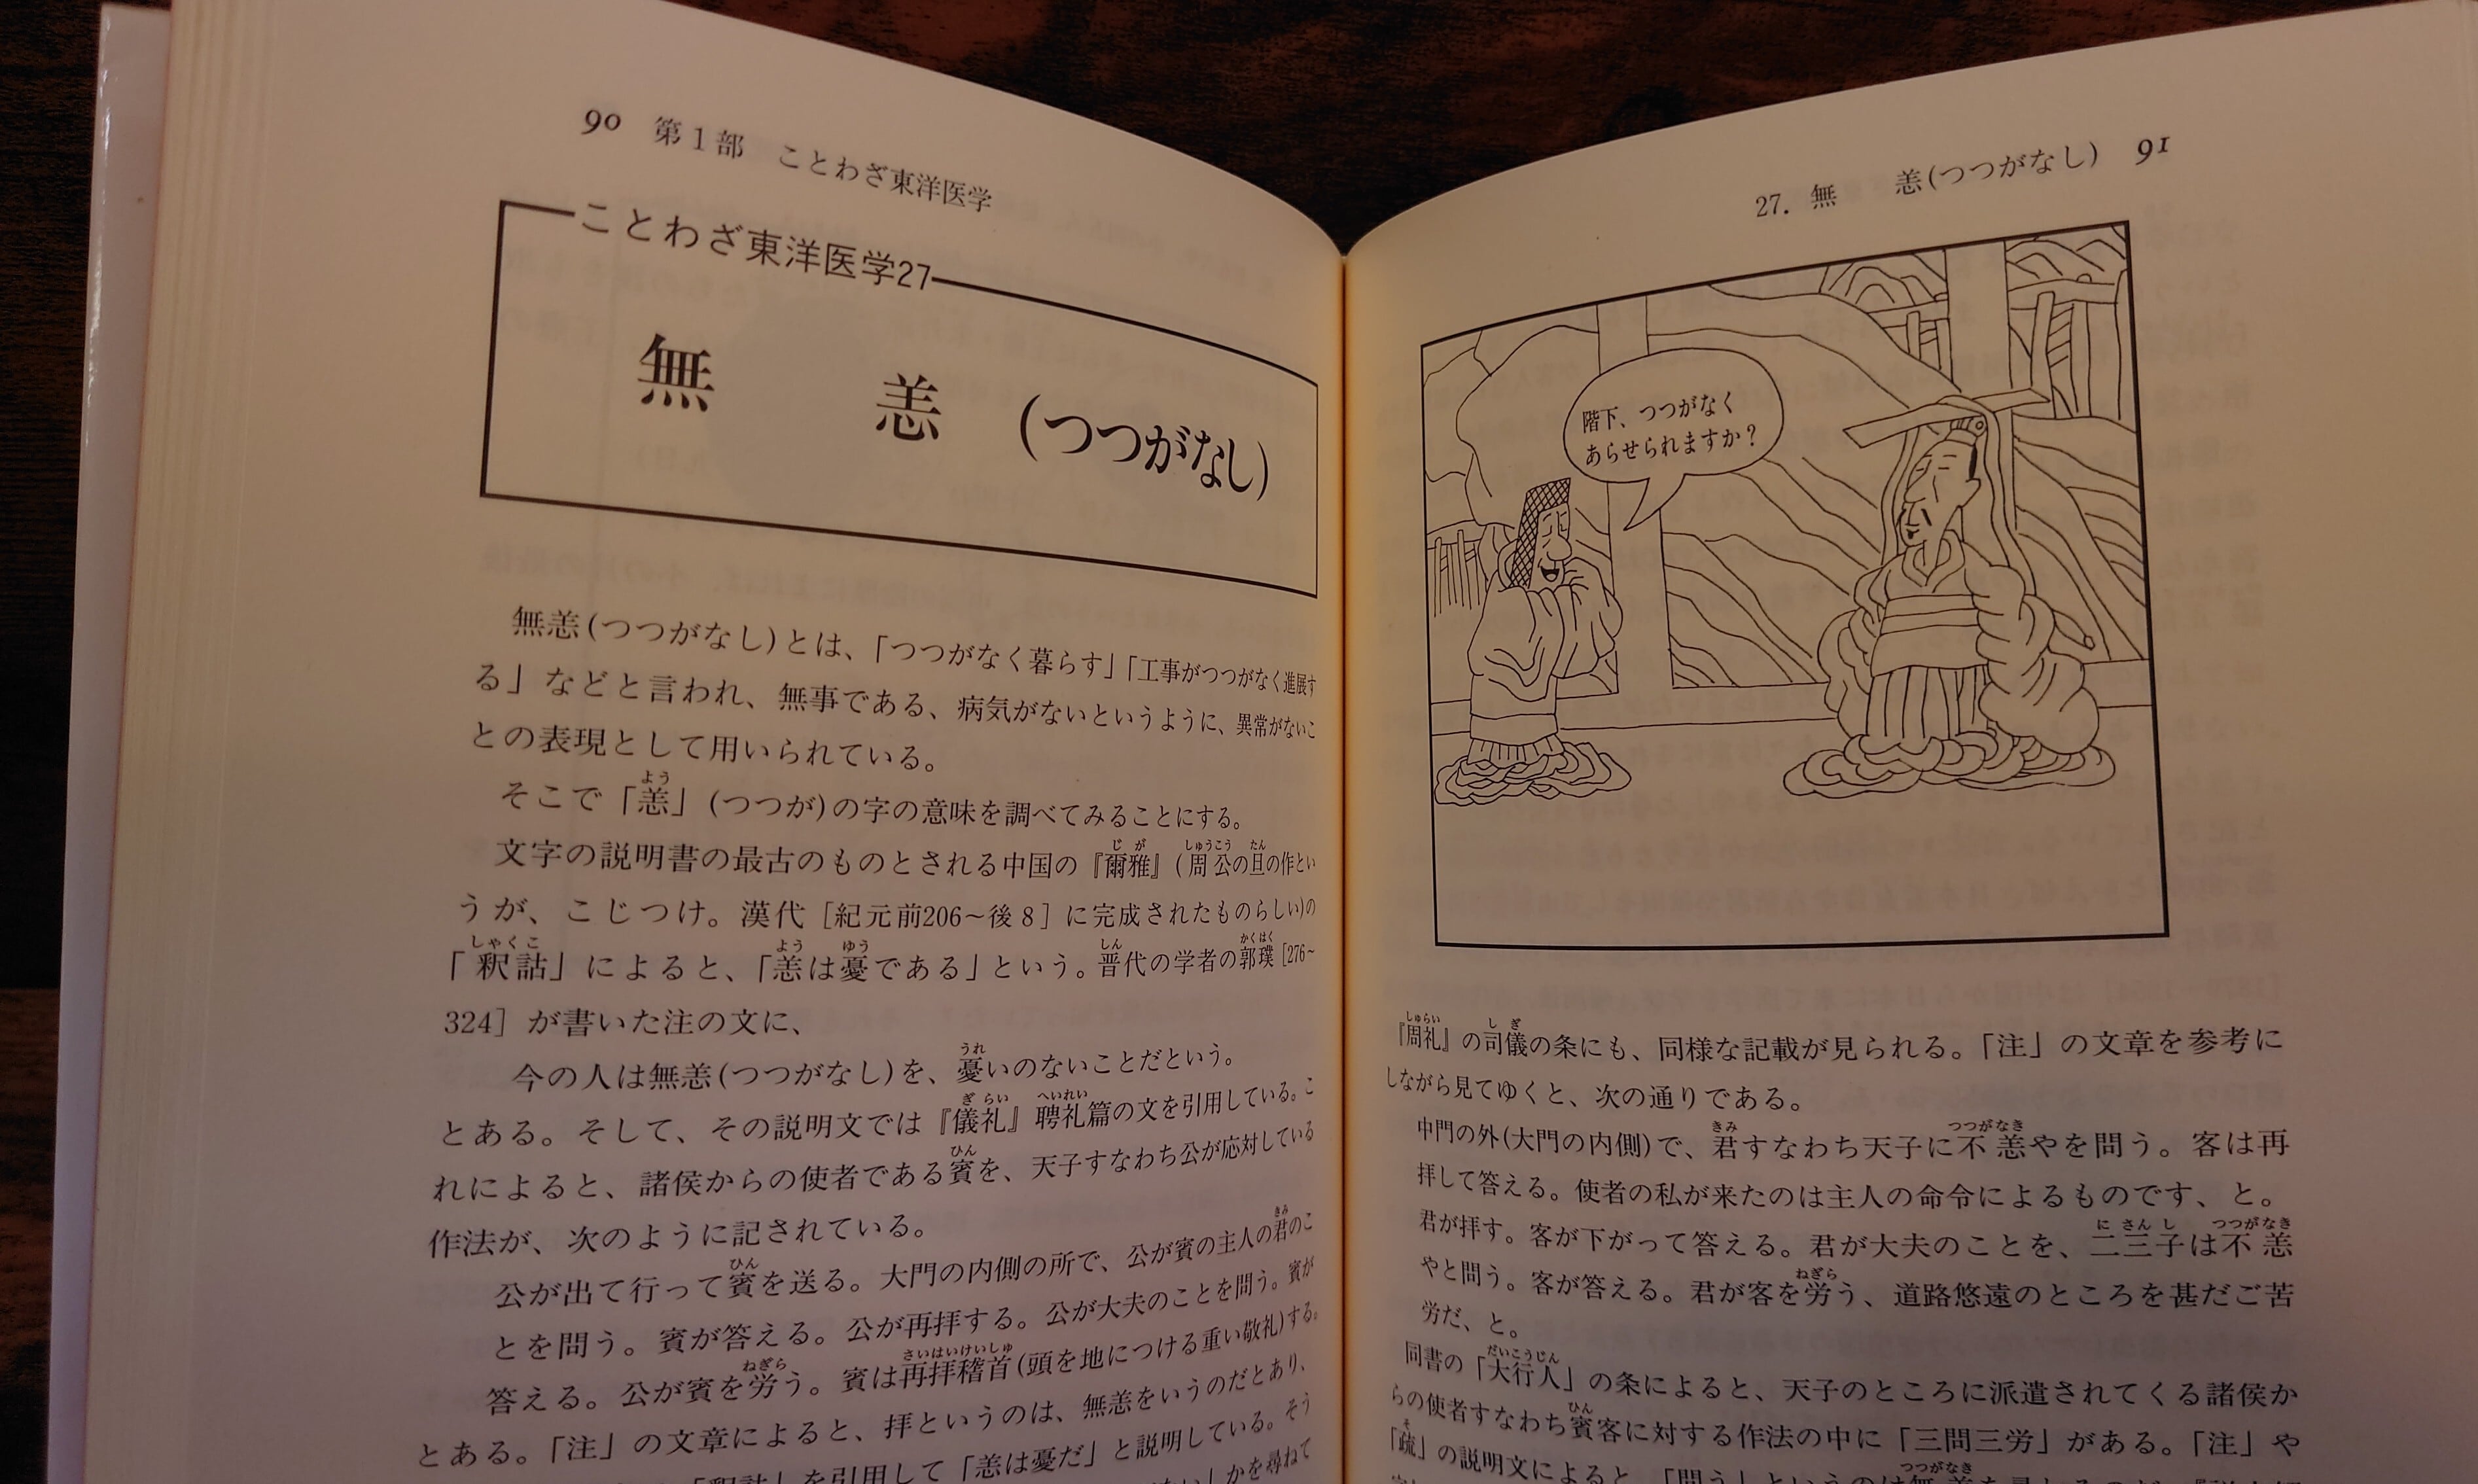 90 第1部 ことわざ東洋医学
ことわざ東洋医学27
無 恙 (つつがなし)
無恙(つつがなし)とは、「つつがなく暮らす」「工事がつつがなく進展す
る」などと言われ、無事である、病気がないというように、異常がないこ
との表現として用いられている。
そこで「恙」(つつが)の字の意味を調べてみることにする。
文字の説明書の最古のものとされる中国の『爾雅』(周公の旦の作とい
うが、こじつけ。漢代[紀元前206〜後8]に完成されたものらしい)の
「釈詁」によると、「恙は憂である」という。晋代の学者の郭璞[276〜
324]が書いた注の文に、
今の人は無恙(つつがなし)を、憂いのないことだという。
とある。そして、その説明文では『儀礼』聘礼篇の文を引用している。こ
れによると、諸侯からの使者である賓を、天子すなわち公が応対している
作法が、次のように記されている。
公が出て行って賓を送る。大門の内側の所で、公が賓の主人の君のこ
とを問う。賓が答える。公が再拝する。公が大夫のことを問う。賓が
答える。公が賓を労う。賓は再拝稽首(頭を地につける重い敬礼)する。
とある。「注」の文章によると、拝というのは、無恙をいうのだとあり、
「釈詁」を引用して「恙は憂だ」と説明している。そう
かを尋ねて
27. 無 恙(つつがなし) 91
階下、つつがなく
あらせられますか?
『周礼』の司儀の条にも、同様な記載が見られる。「注」の文章を参考に
しながら見てゆくと、次の通りである。
中門の外(大門の内側)で、君すなわち天子に不恙やを問う。客は再
拝して答える。使者の私が来たのは主人の命令によるものです、と。
君が拝す。客が下がって答える。君が大夫のことを、二三子は不恙
やと問う。客が答える。君が客を労う、道路悠遠のところを甚だご苦
労だ、と。
同書の「大行人」の条によると、天子のところに派遣されてくる諸侯か
らの使者すなわち賓客に対する作法の中に「三問三労」がある。「注」や
「疏」の説明文によると、「問う」というのは無恙